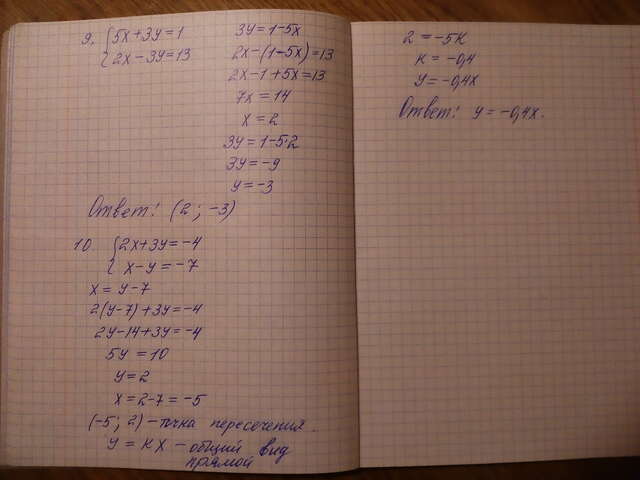 9. {5x+3y=1
{2x-3y=13
3y=1-5x
2x-(1-5x)=13
2x-1+5x=13
7x=14
x=2
3y=1-5·2
3y=-9
y=-3
Ответ: (2; -3)
10 {2x+3y=-4
{x-y=-7
x=y-7
2(y-7)+3y=-4
2y-14+3y=-4
5y=10
y=2
x=2-7=-5
(-5; 2)-точка пересечения.
y=кx-общий вид
прямой
2=-5к
к=-0,4
y=-0,4x
Ответ: y=-0,4x.